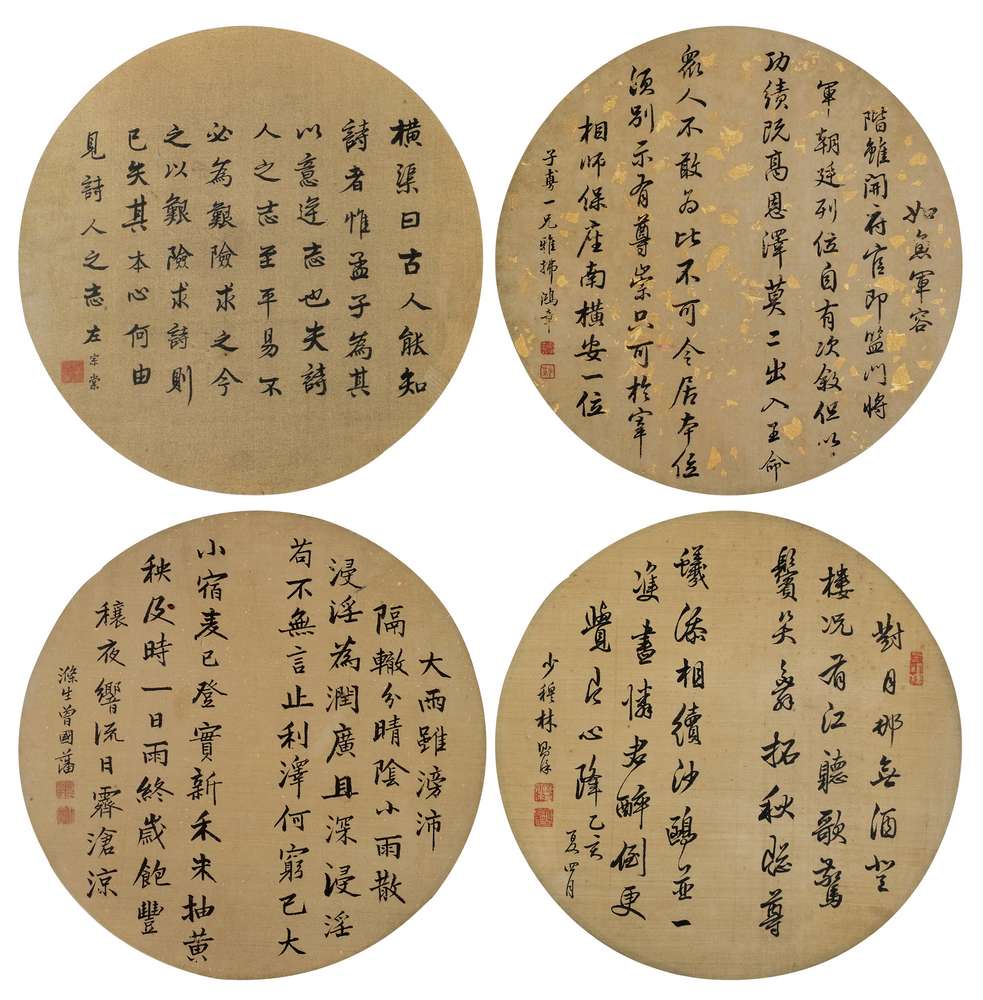 橫渠曰古人能知
詩者惟孟子為其
以意逆志也夫詩
人之志至平易不
必為艱險求之今
之以艱險求詩則
已失其本心何由
見詩人之志左宗棠
如魚軍容
階雖開府官即監門將
軍朝廷列位自有次敘但以
功績既高恩澤莫二出入王命
眾人不敢為比不可令居本位
須別示有尊崇只可於宰
相師保座南橫安一位
子專一兄雅拂鴻章
大雨雖滂沛
隔轍分晴陰小雨散
浸淫為潤廣且深浸淫
苟不無言止利澤何窮已大
小宿麦已登實新禾未抽黃
秧及時一日雨終歲飽豐
穰夜響流日霽滄涼
滌生曾國藩
對月那無酒登
樓況有江聽歌驚
鬢笑舞拓秋聰尊
蟻添相續沙鷗並一
雙盡憐君醉倒更
覺片心降乙亥
夏四月
少穆林則徐